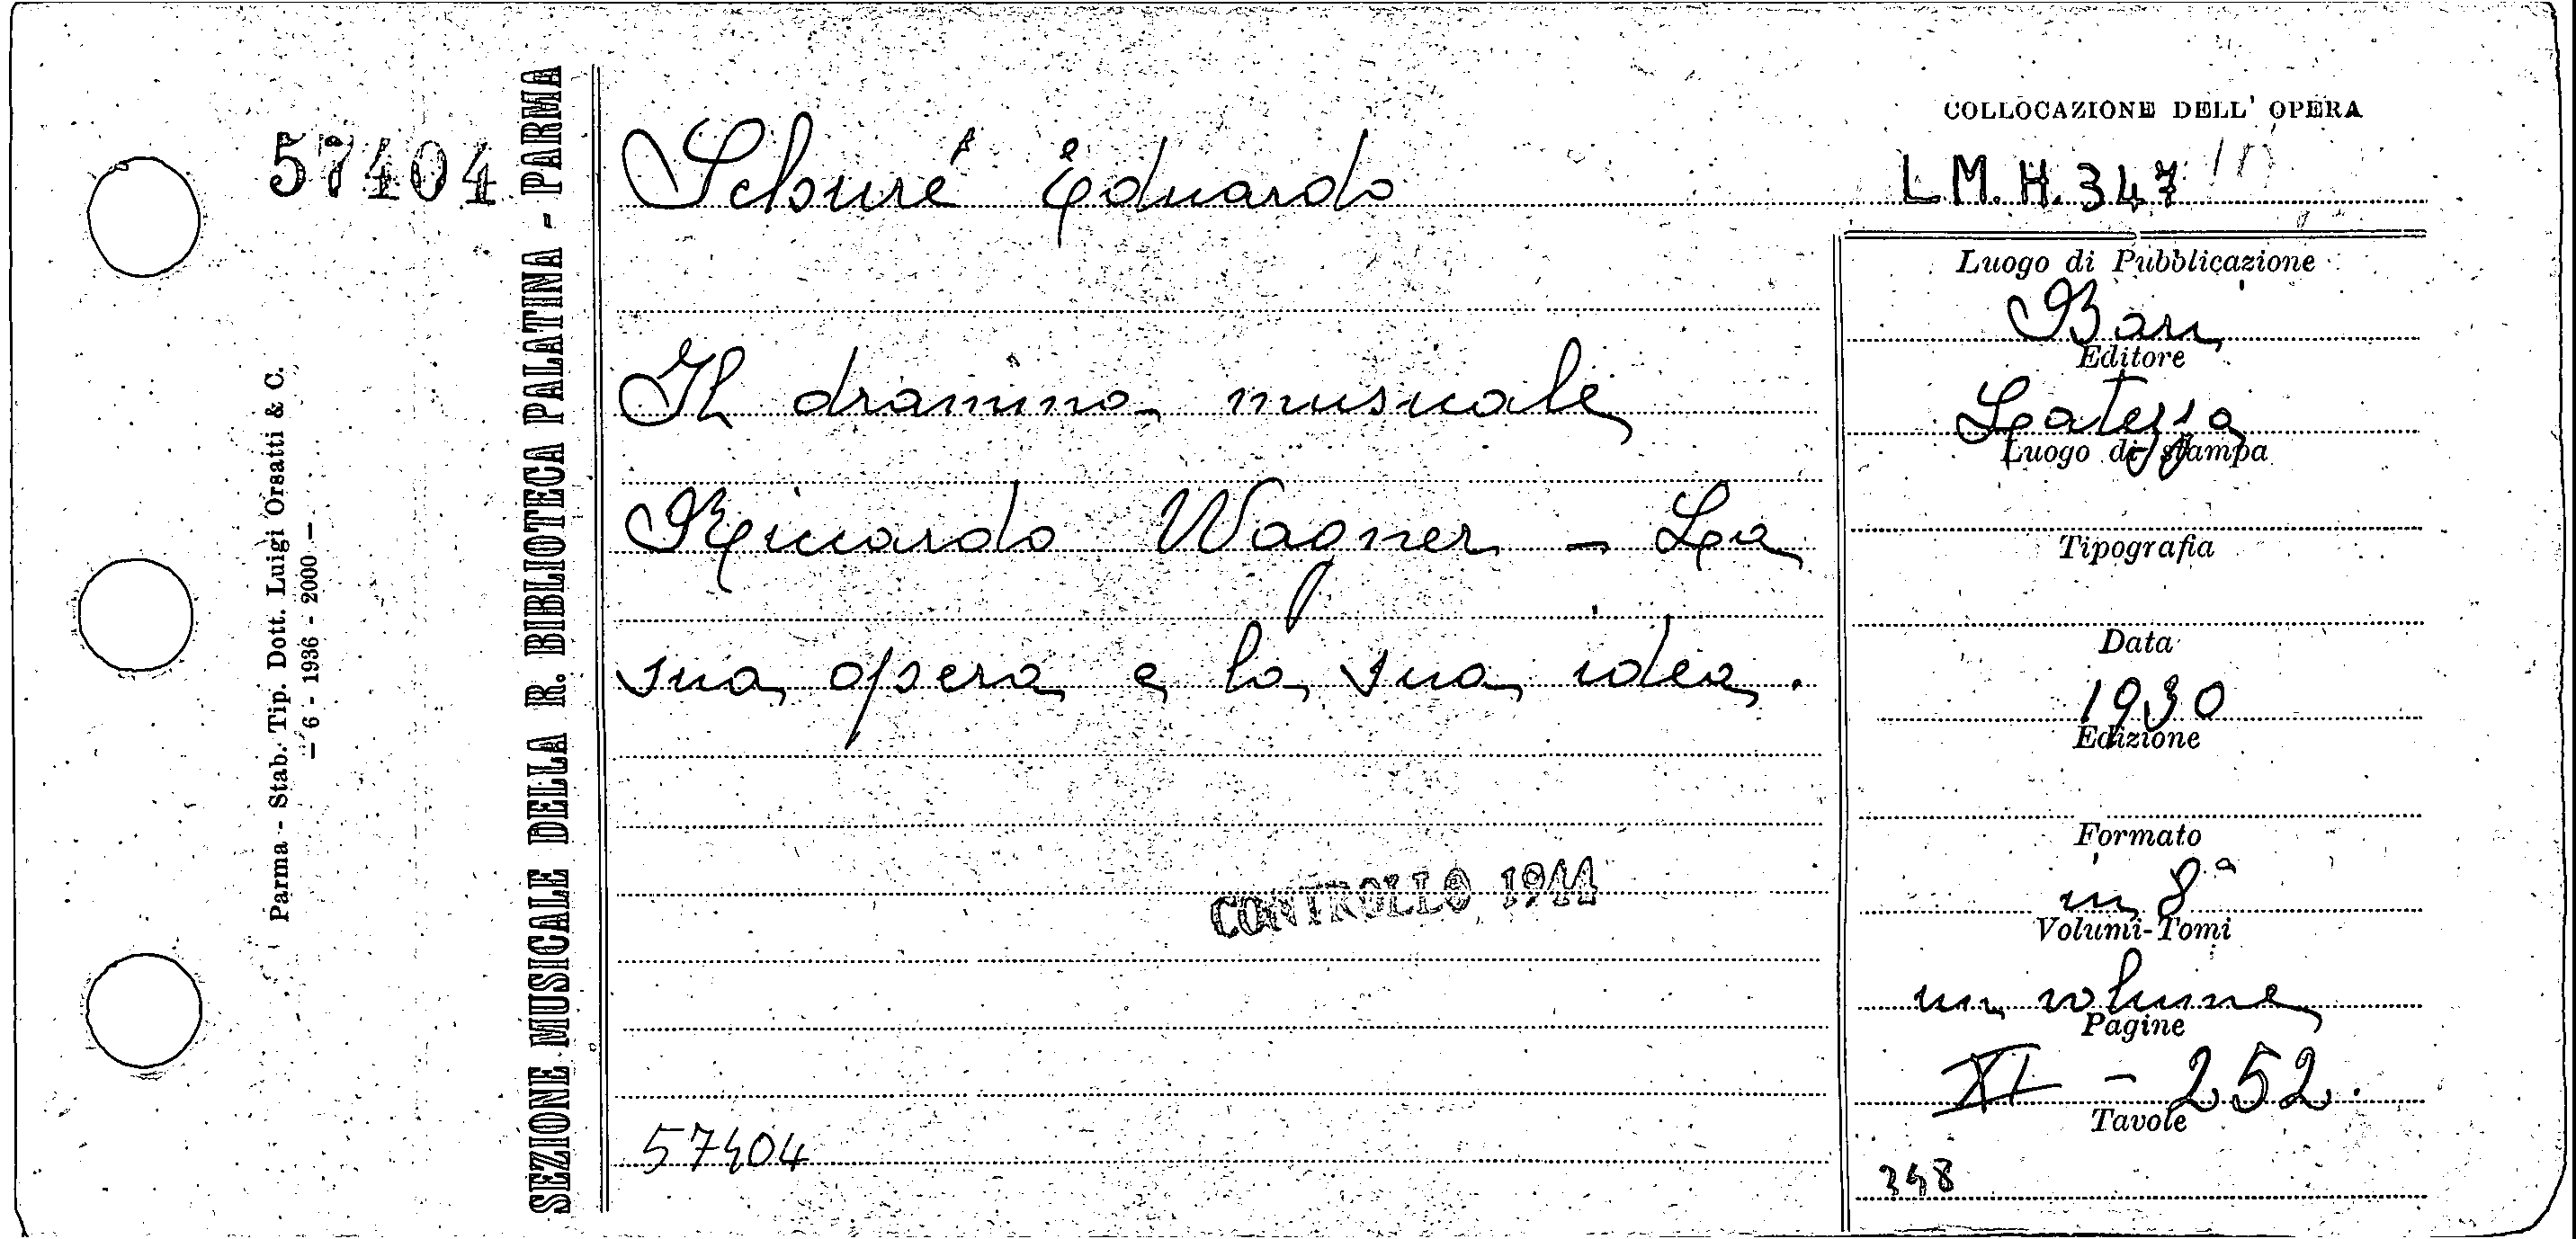 57404
Parma - Stab. Tip. Dott. Luigi Orsatti & C.
— 6 - 1936 - 2000 —
SEZIONE MUSICALE DELLA R. BIBLIOTECA PALATINA - PARMA
Schuré Eduardo
Il dramma musicale
Riccardo Wagner - La
sua opera e la sua idea.
CONTROLLO 1944
57404
COLLOCAZIONE DELL' OPERA
L.M.H. 347
Luogo di Pubblicazione
Bari
Editore
Laterza
Luogo di stampa
Tipografia
Data
1930
Edizione
Formato
in 8ª
Volumi-Tomi
un volume
Pagine
XI - 252.
Tavole
348